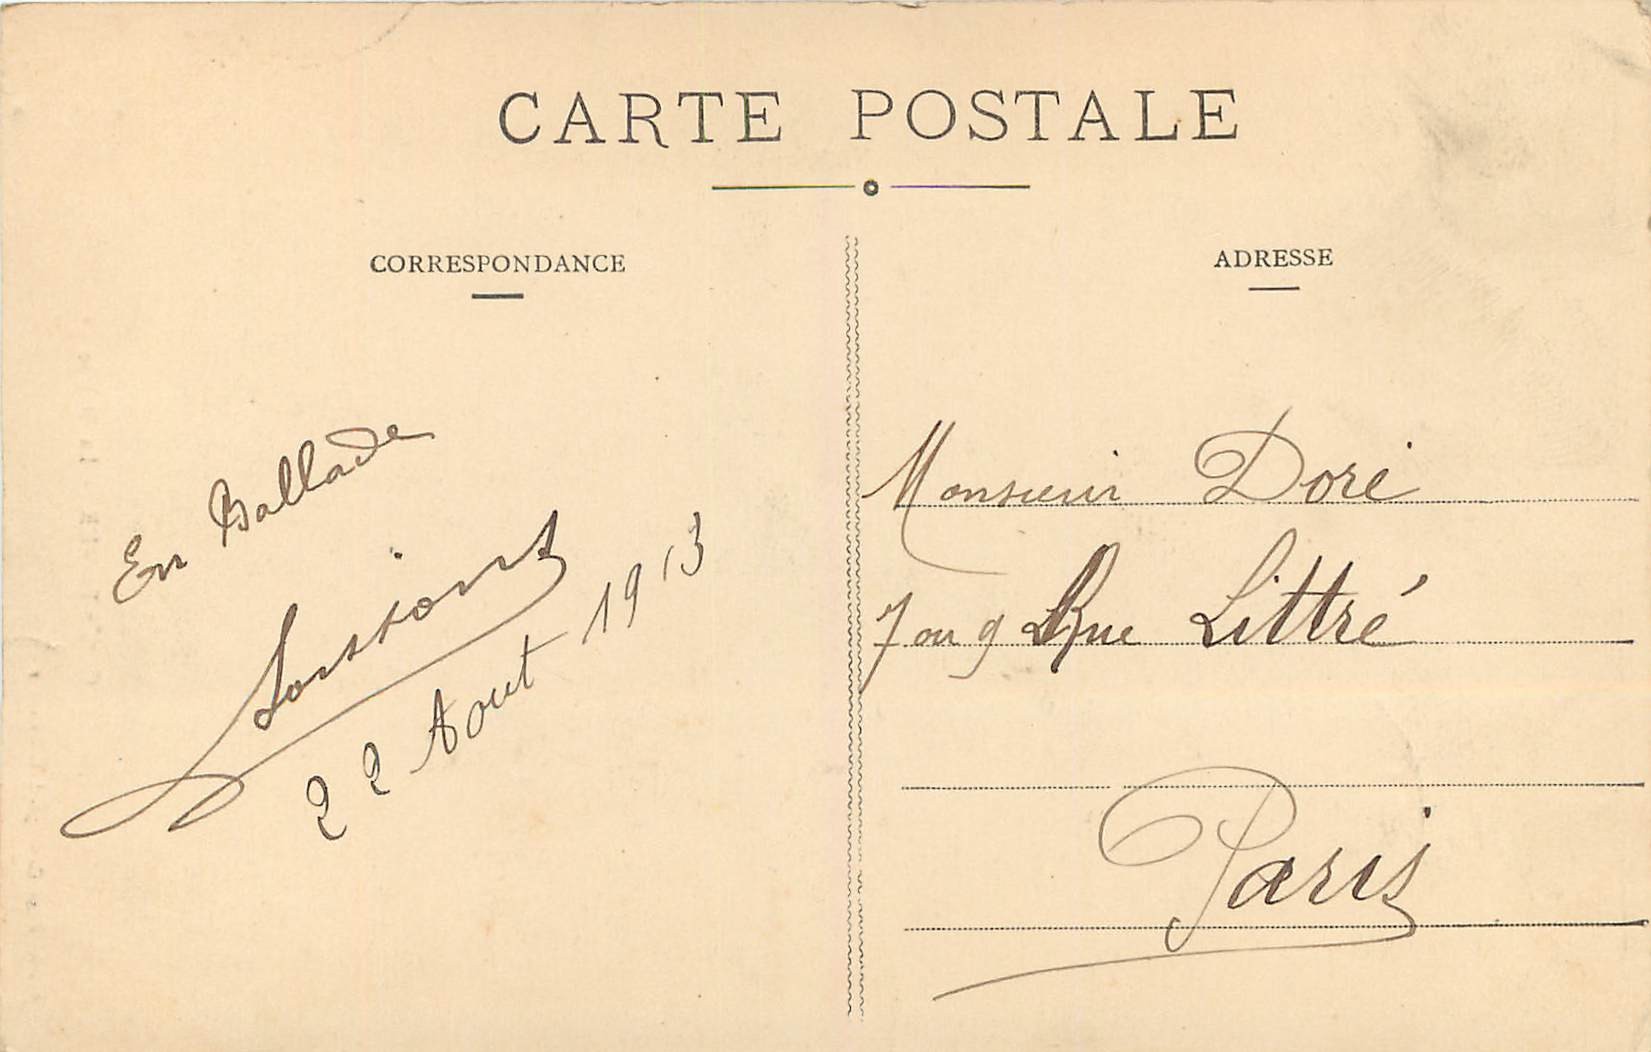 CARTE POSTALE
CORRESPONDANCE
En Ballade
22 Aout 1913
ADRESSE
Monsieur Doré
7 ou 9 Rue Littré
Paris